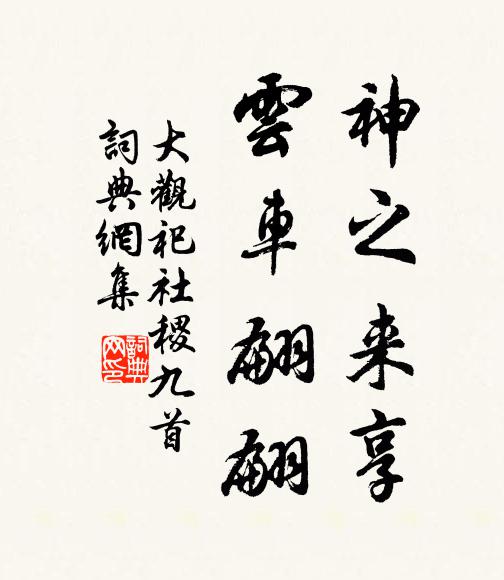 神之来享
雲車翩翩
大觀祀社稷九首
詞典網集
詞典网印